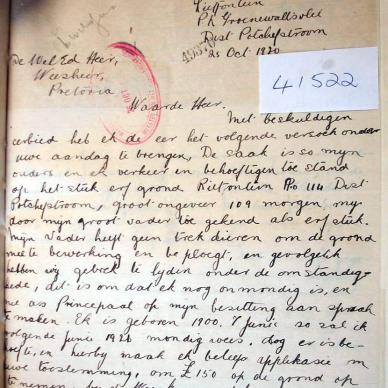 Rietfontein
P.K. Groenewaltsvlei
Dist Potchefstroom
25 Oct 1920
41522
De Wel Ed Heer,
Weesheer,
Pretoria
Waarde Heer.
Met beskuldigen
eerbied heb ek de eer het volgende versoek onder
uwe aandag te brengen, De saak is so mijn
ouders en ek verkeer en behoeftigen toe stand
op het stuk erf grond Rietfontein No 114 Dist
Potchefstroom, groot ongeveer 109 morgen, my
door mijn groot vader toe gekend als erf stuk.
mijn Vader heeft geen trek dieren om de grond
mee te bewerking en be ploegt, en gevolglik
hebben wij gebrek te lijden onder de omstandig-
hede, dit is om dat ek nog onmondig is, en
nie as Principaal op mijn besetting aan spraak
te maken. Ek is geboren 1900. 7 Junie so sal ik
volgende Junie 1921 mondig wees, dog er is be-
hoefte, en hierby maak ek beleef applikasie in
uwe toestemming, om £150 op de grond op
te nemen,